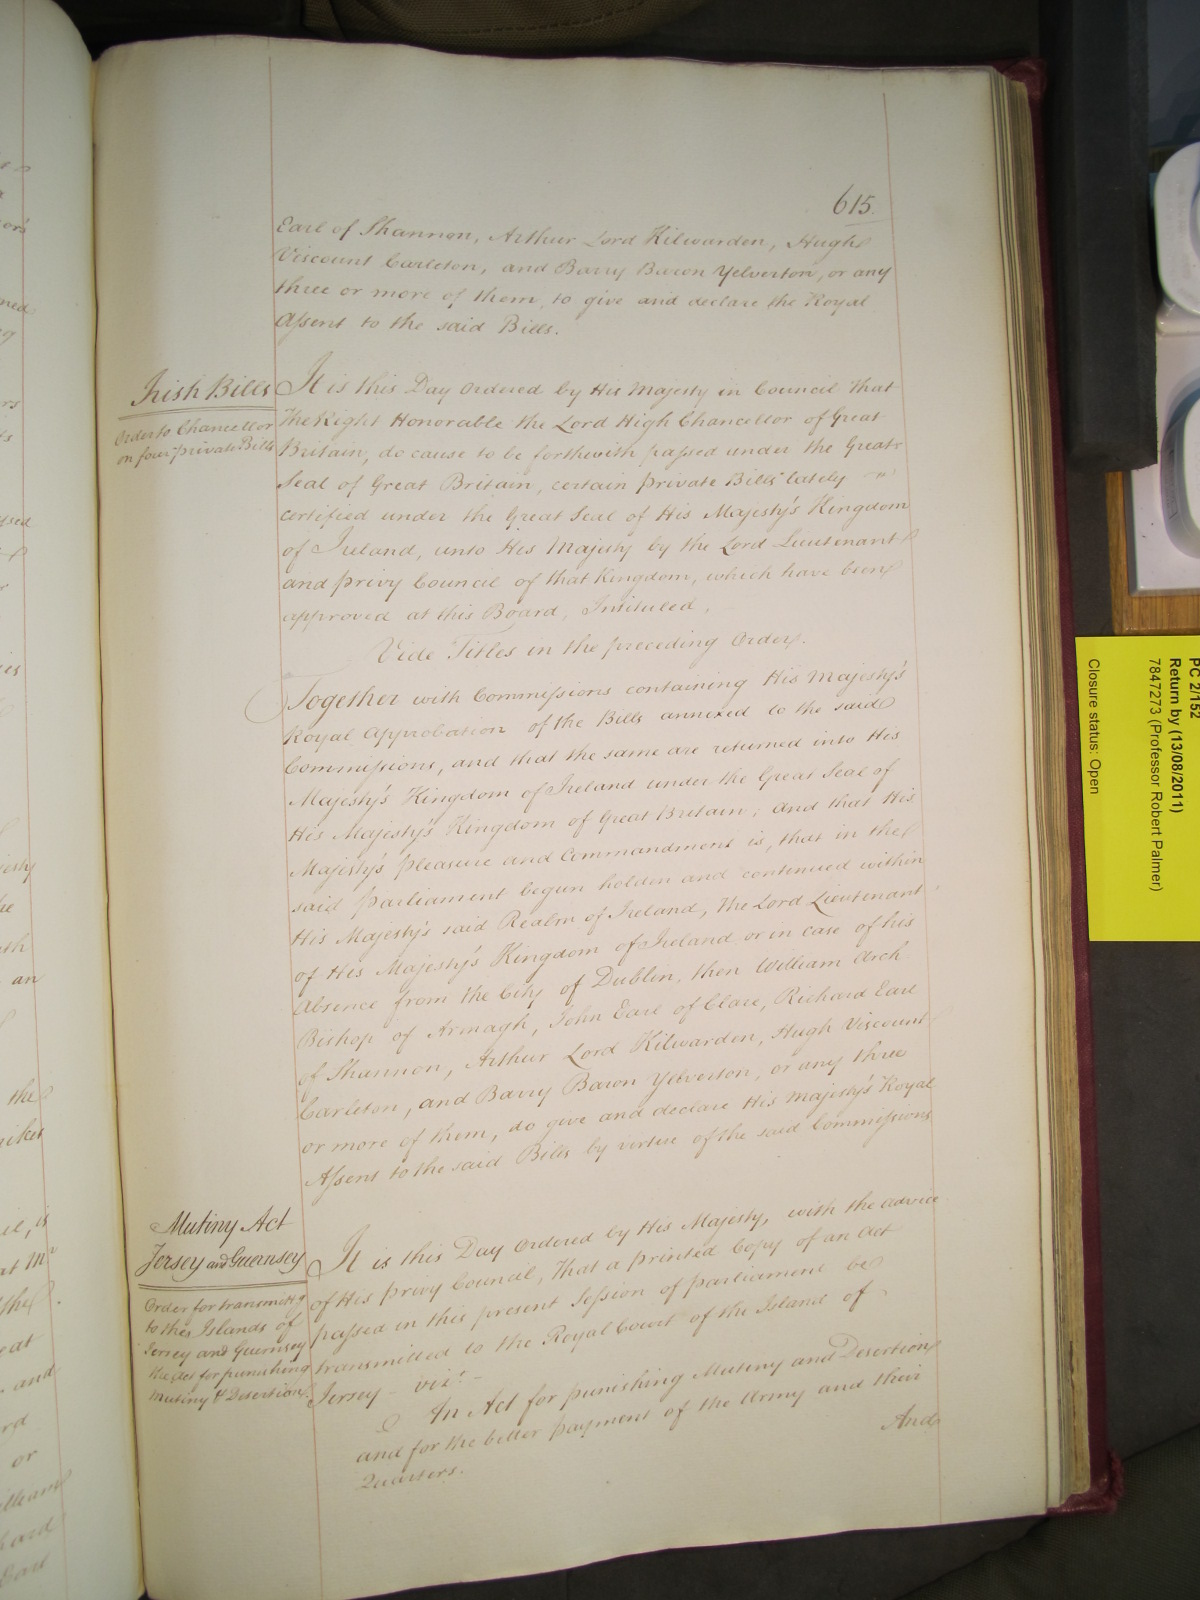 615.
Earl of Shannon, Arthur Lord Kilwarden, Hugh
Viscount Carleton, and Barry Baron Yelverton, or any
three or more of them, to give and declare the Royal
Assent to the said Bills.
Irish Bills
Order to Chancellor
on four private Bills
It is this Day Ordered by His Majesty in Council that
The Right Honorable the Lord High Chancellor of Great
Britain, do cause to be forthwith passed under the Great
Seal of Great Britain, certain private Bills lately
certified under the Great Seal of His Majesty's Kingdom
of Ireland, unto His Majesty by the Lord Lieutenant
and privy Council of that Kingdom, which have been
approved at this Board, Intituled,
Vide Titles in the preceding Order.
Together with Commissions containing His Majesty's
Royal Approbation of the Bills annexed to the said
Commissions, and that the same are returned into His
Majesty's Kingdom of Ireland under the Great Seal of
His Majesty's Kingdom of Great Britain; And that His
Majesty's pleasure and Commandment is, that in the
said Parliament begun holden and continued within
His Majesty's said Realm of Ireland, The Lord Lieutenant
of His Majesty's Kingdom of Ireland or in case of his
Absence from the City of Dublin, then William Arch
Bishop of Armagh, John Earl of Clare, Richard Earl
of Shannon, Arthur Lord Kilwarden, Hugh Viscount
Carleton, and Barry Baron Yelverton, or any three
or more of them, do give and declare His Majesty's Royal
Assent to the said Bills by virtue of the said Commissions
Mutiny Act
Jersey and Guernsey
Order for transmittg
to the Islands of
Jersey and Guernsey
the Act for punishing
Mutiny & Desertion.
It is this Day Ordered by His Majesty, with the advice
of His privy Council, That a printed Copy of an Act
passed in this present Session of parliament be
transmitted to the Royal Court of the Island of
Jersey - vizt. -
An Act for punishing Mutiny and Desertion
and for the better payment of the Army and their
Quarters.
And
PC 2/152
Return by (13/08/2011)
7847273 (Professor Robert Palmer)
Closure status: Open